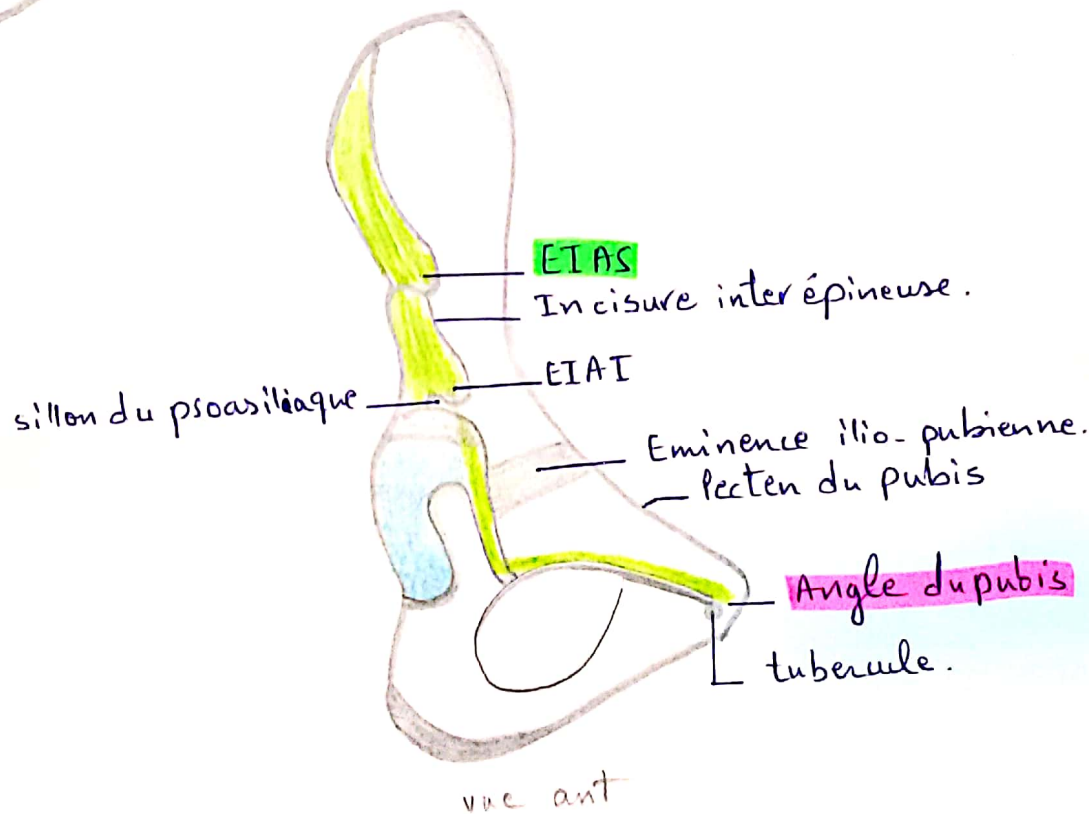 EIAS
Incisure inter épineuse.
EIAI
sillon du psoasiliaque
Eminence ilio-pubienne.
Pecten du pubis
Angle du pubis
tubercule.
vue ant